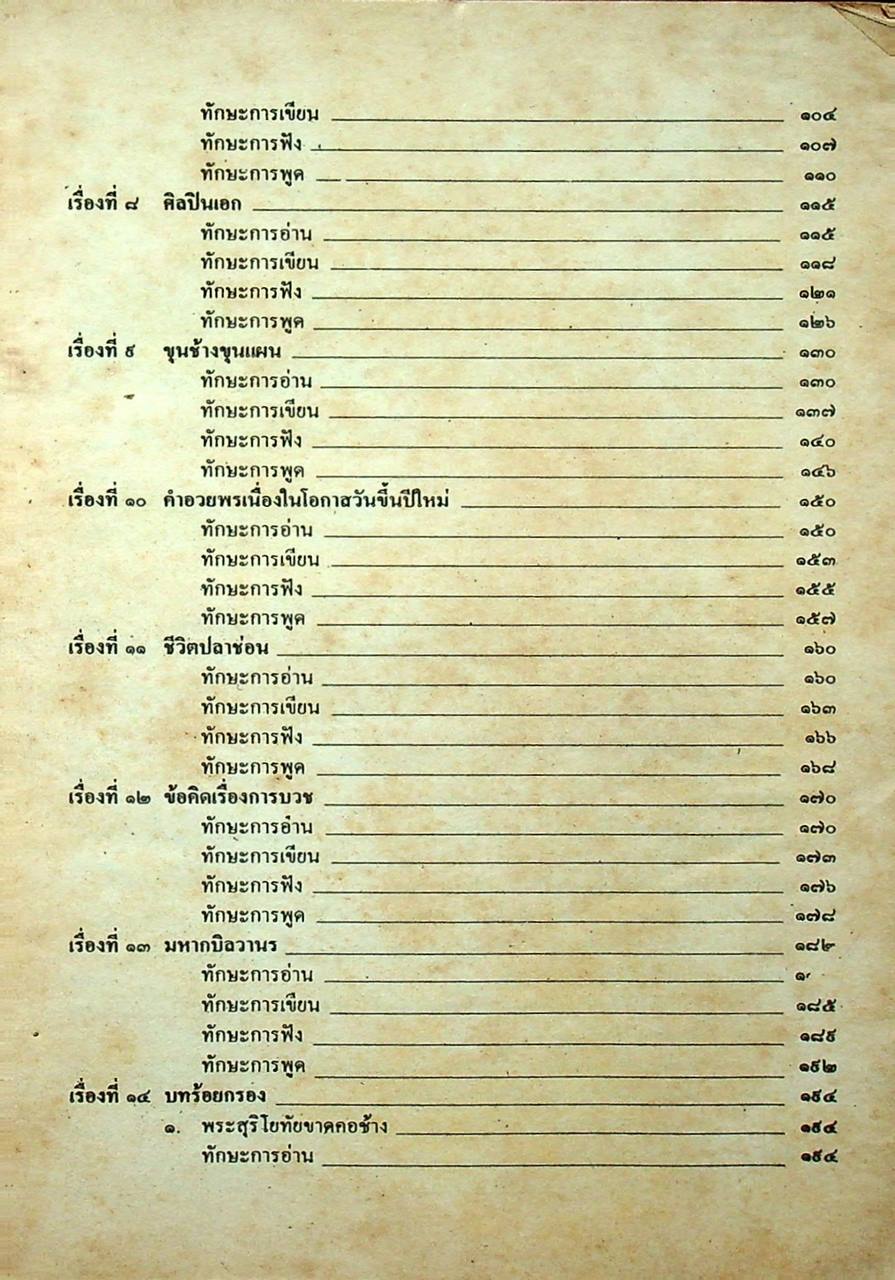 ทักษะการเขียน ๑๐๔
ทักษะการฟัง ๑๐๗
ทักษะการพูด ๑๑๐
เรื่องที่ ๘ ศิลปินเอก ๑๑๕
ทักษะการอ่าน ๑๑๕
ทักษะการเขียน ๑๑๘
ทักษะการฟัง ๑๒๑
ทักษะการพูด ๑๒๖
เรื่องที่ ๙ ขุนช้างขุนแผน ๑๓๐
ทักษะการอ่าน ๑๓๐
ทักษะการเขียน ๑๓๗
ทักษะการฟัง ๑๔๐
ทักษะการพูด ๑๔๖
เรื่องที่ ๑๐ คำอวยพรเนื่องในโอกาสวันขึ้นปีใหม่ ๑๕๐
ทักษะการอ่าน ๑๕๐
ทักษะการเขียน ๑๕๓
ทักษะการฟัง ๑๕๕
ทักษะการพูด ๑๕๗
เรื่องที่ ๑๑ ชีวิตปลาช่อน ๑๖๐
ทักษะการอ่าน ๑๖๐
ทักษะการเขียน ๑๖๓
ทักษะการฟัง ๑๖๖
ทักษะการพูด ๑๖๘
เรื่องที่ ๑๒ ข้อคิดเรื่องการบวช ๑๗๐
ทักษะการอ่าน ๑๗๐
ทักษะการเขียน ๑๗๓
ทักษะการฟัง ๑๗๖
ทักษะการพูด ๑๗๘
เรื่องที่ ๑๓ มหากบิลวานร ๑๘๒
ทักษะการอ่าน
ทักษะการเขียน ๑๘๕
ทักษะการฟัง ๑๘๙
ทักษะการพูด ๑๙๒
เรื่องที่ ๑๔ บทร้อยกรอง ๑๙๔
๑. พระสุริโยทัยขาดคอช้าง ๑๙๔
ทักษะการอ่าน ๑๙๔